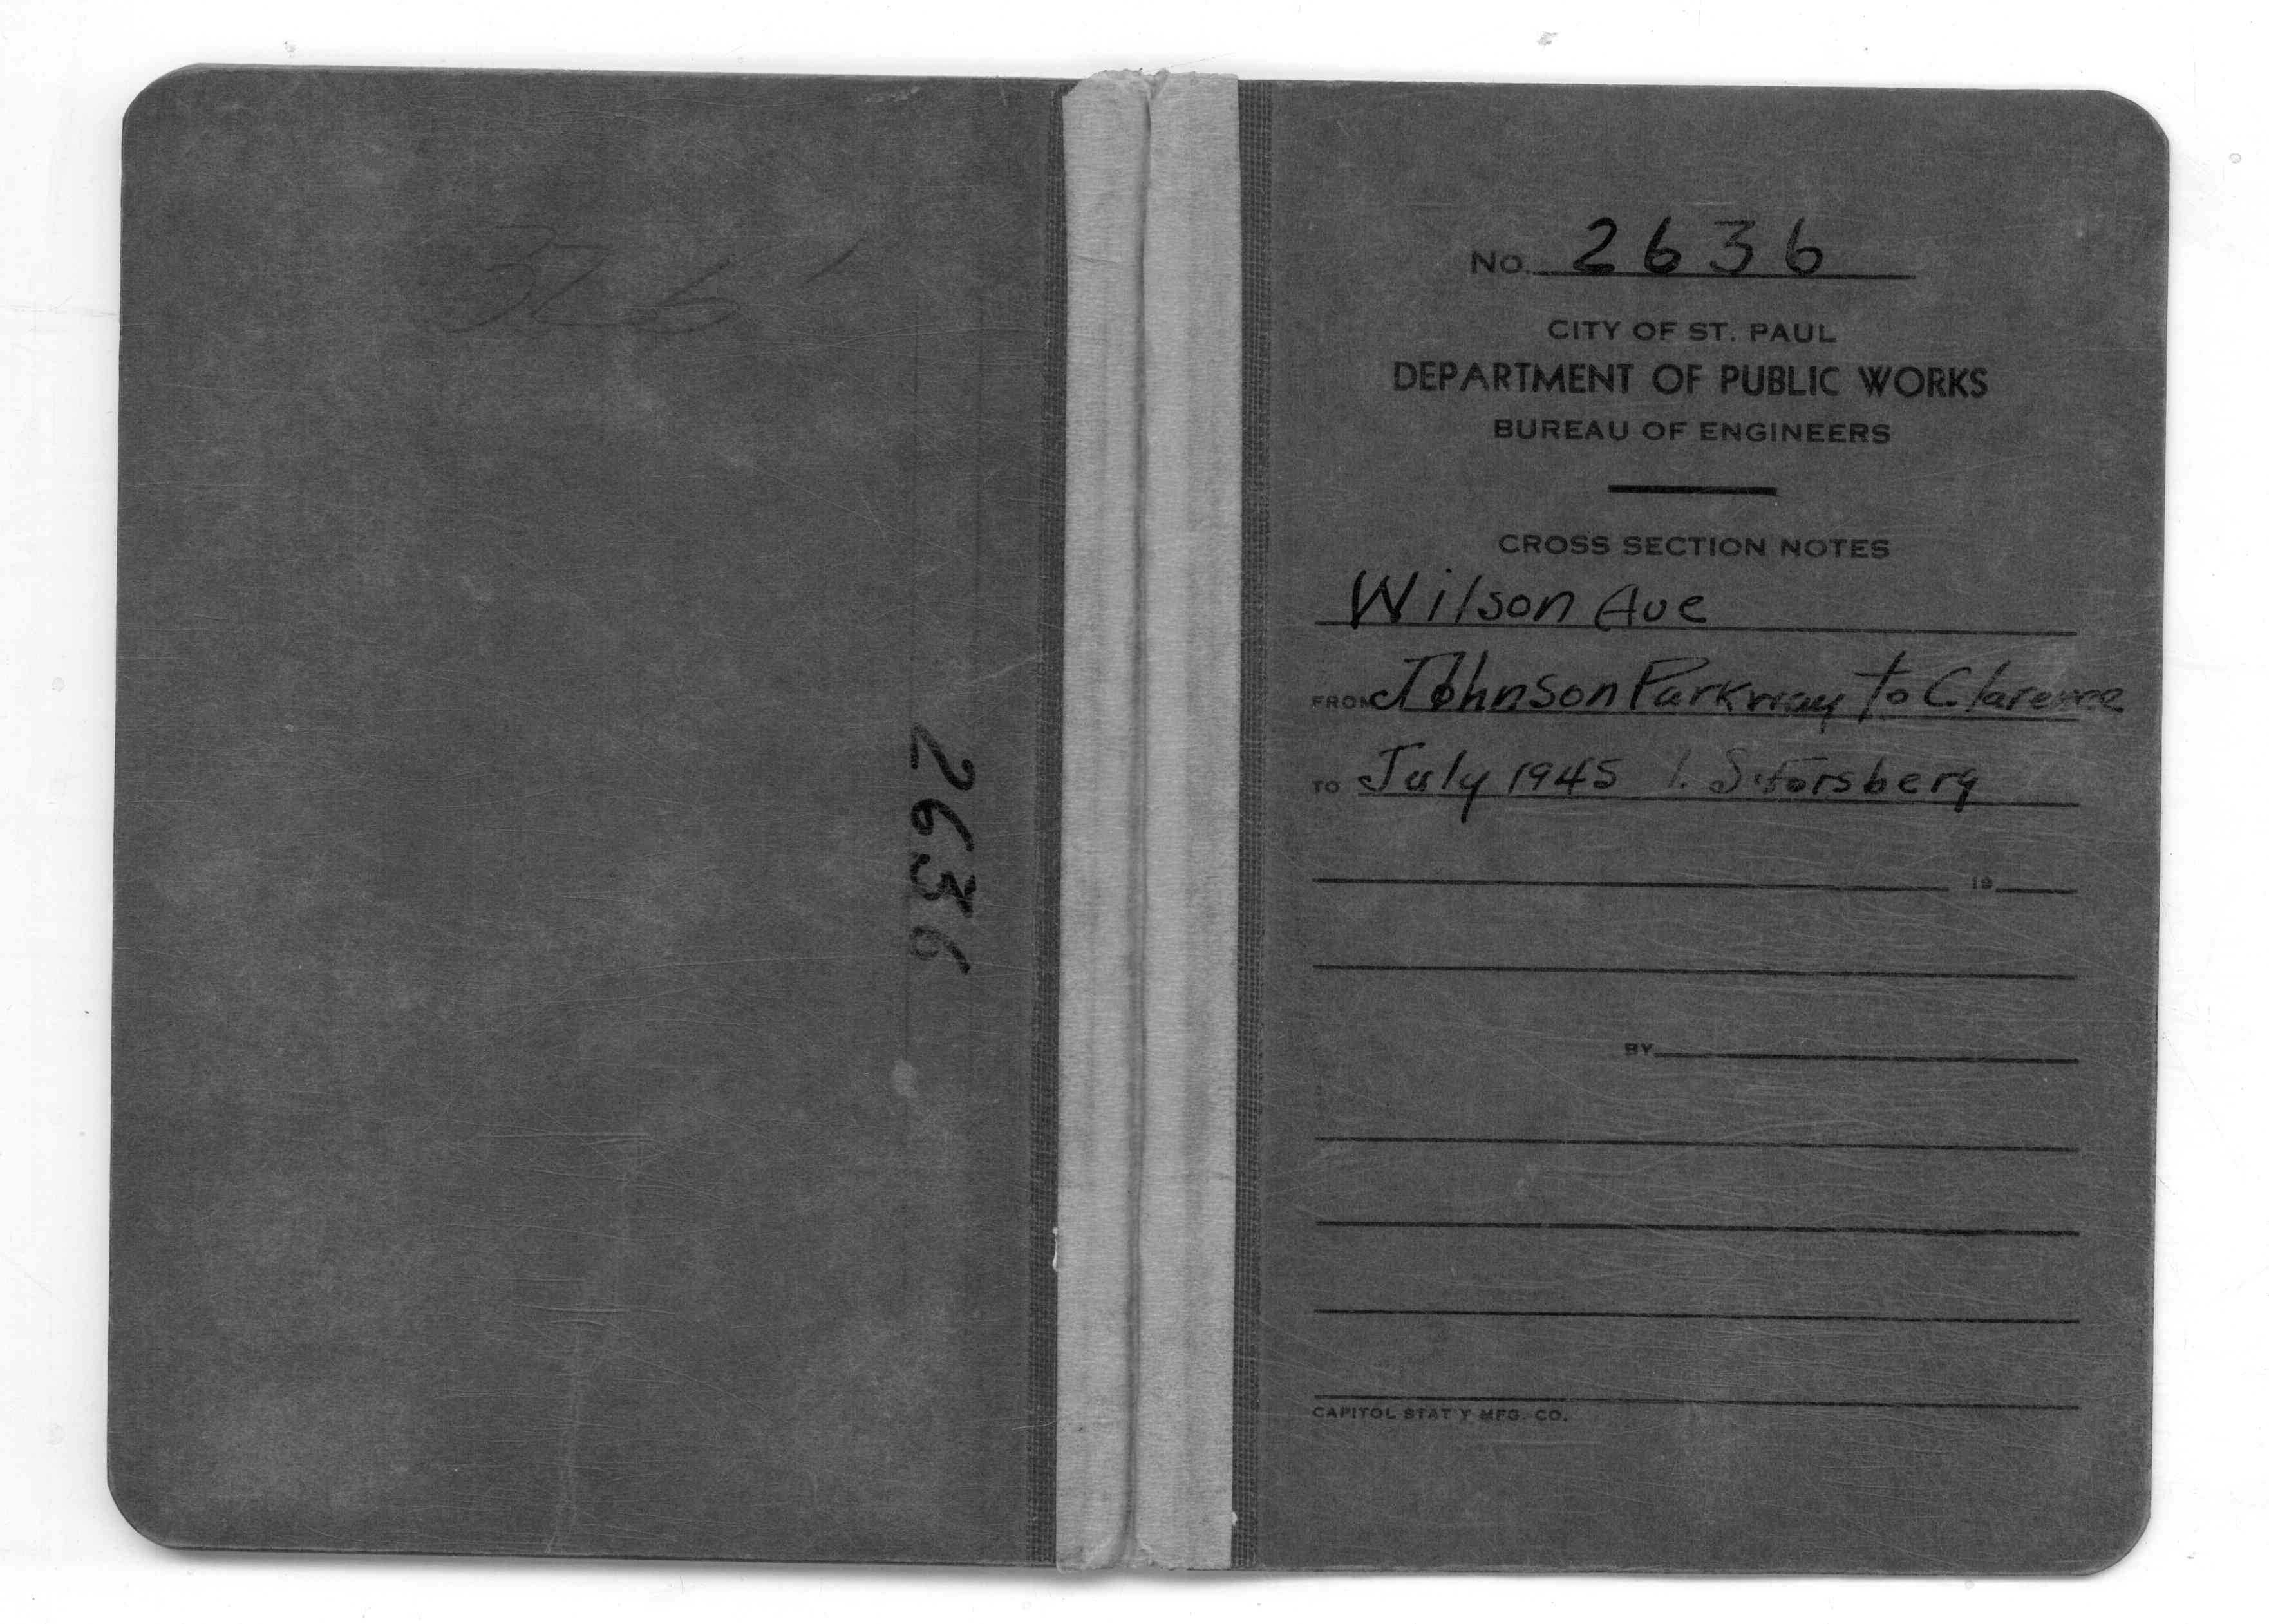 2636
No. 2636
CITY OF ST. PAUL
DEPARTMENT OF PUBLIC WORKS
BUREAU OF ENGINEERS
CROSS SECTION NOTES
Wilson Ave
FROM Johnson Parkway to Clarence
TO July 1945 S. Forsberg
19
BY
CAPITOL STAT'Y MFG. CO.